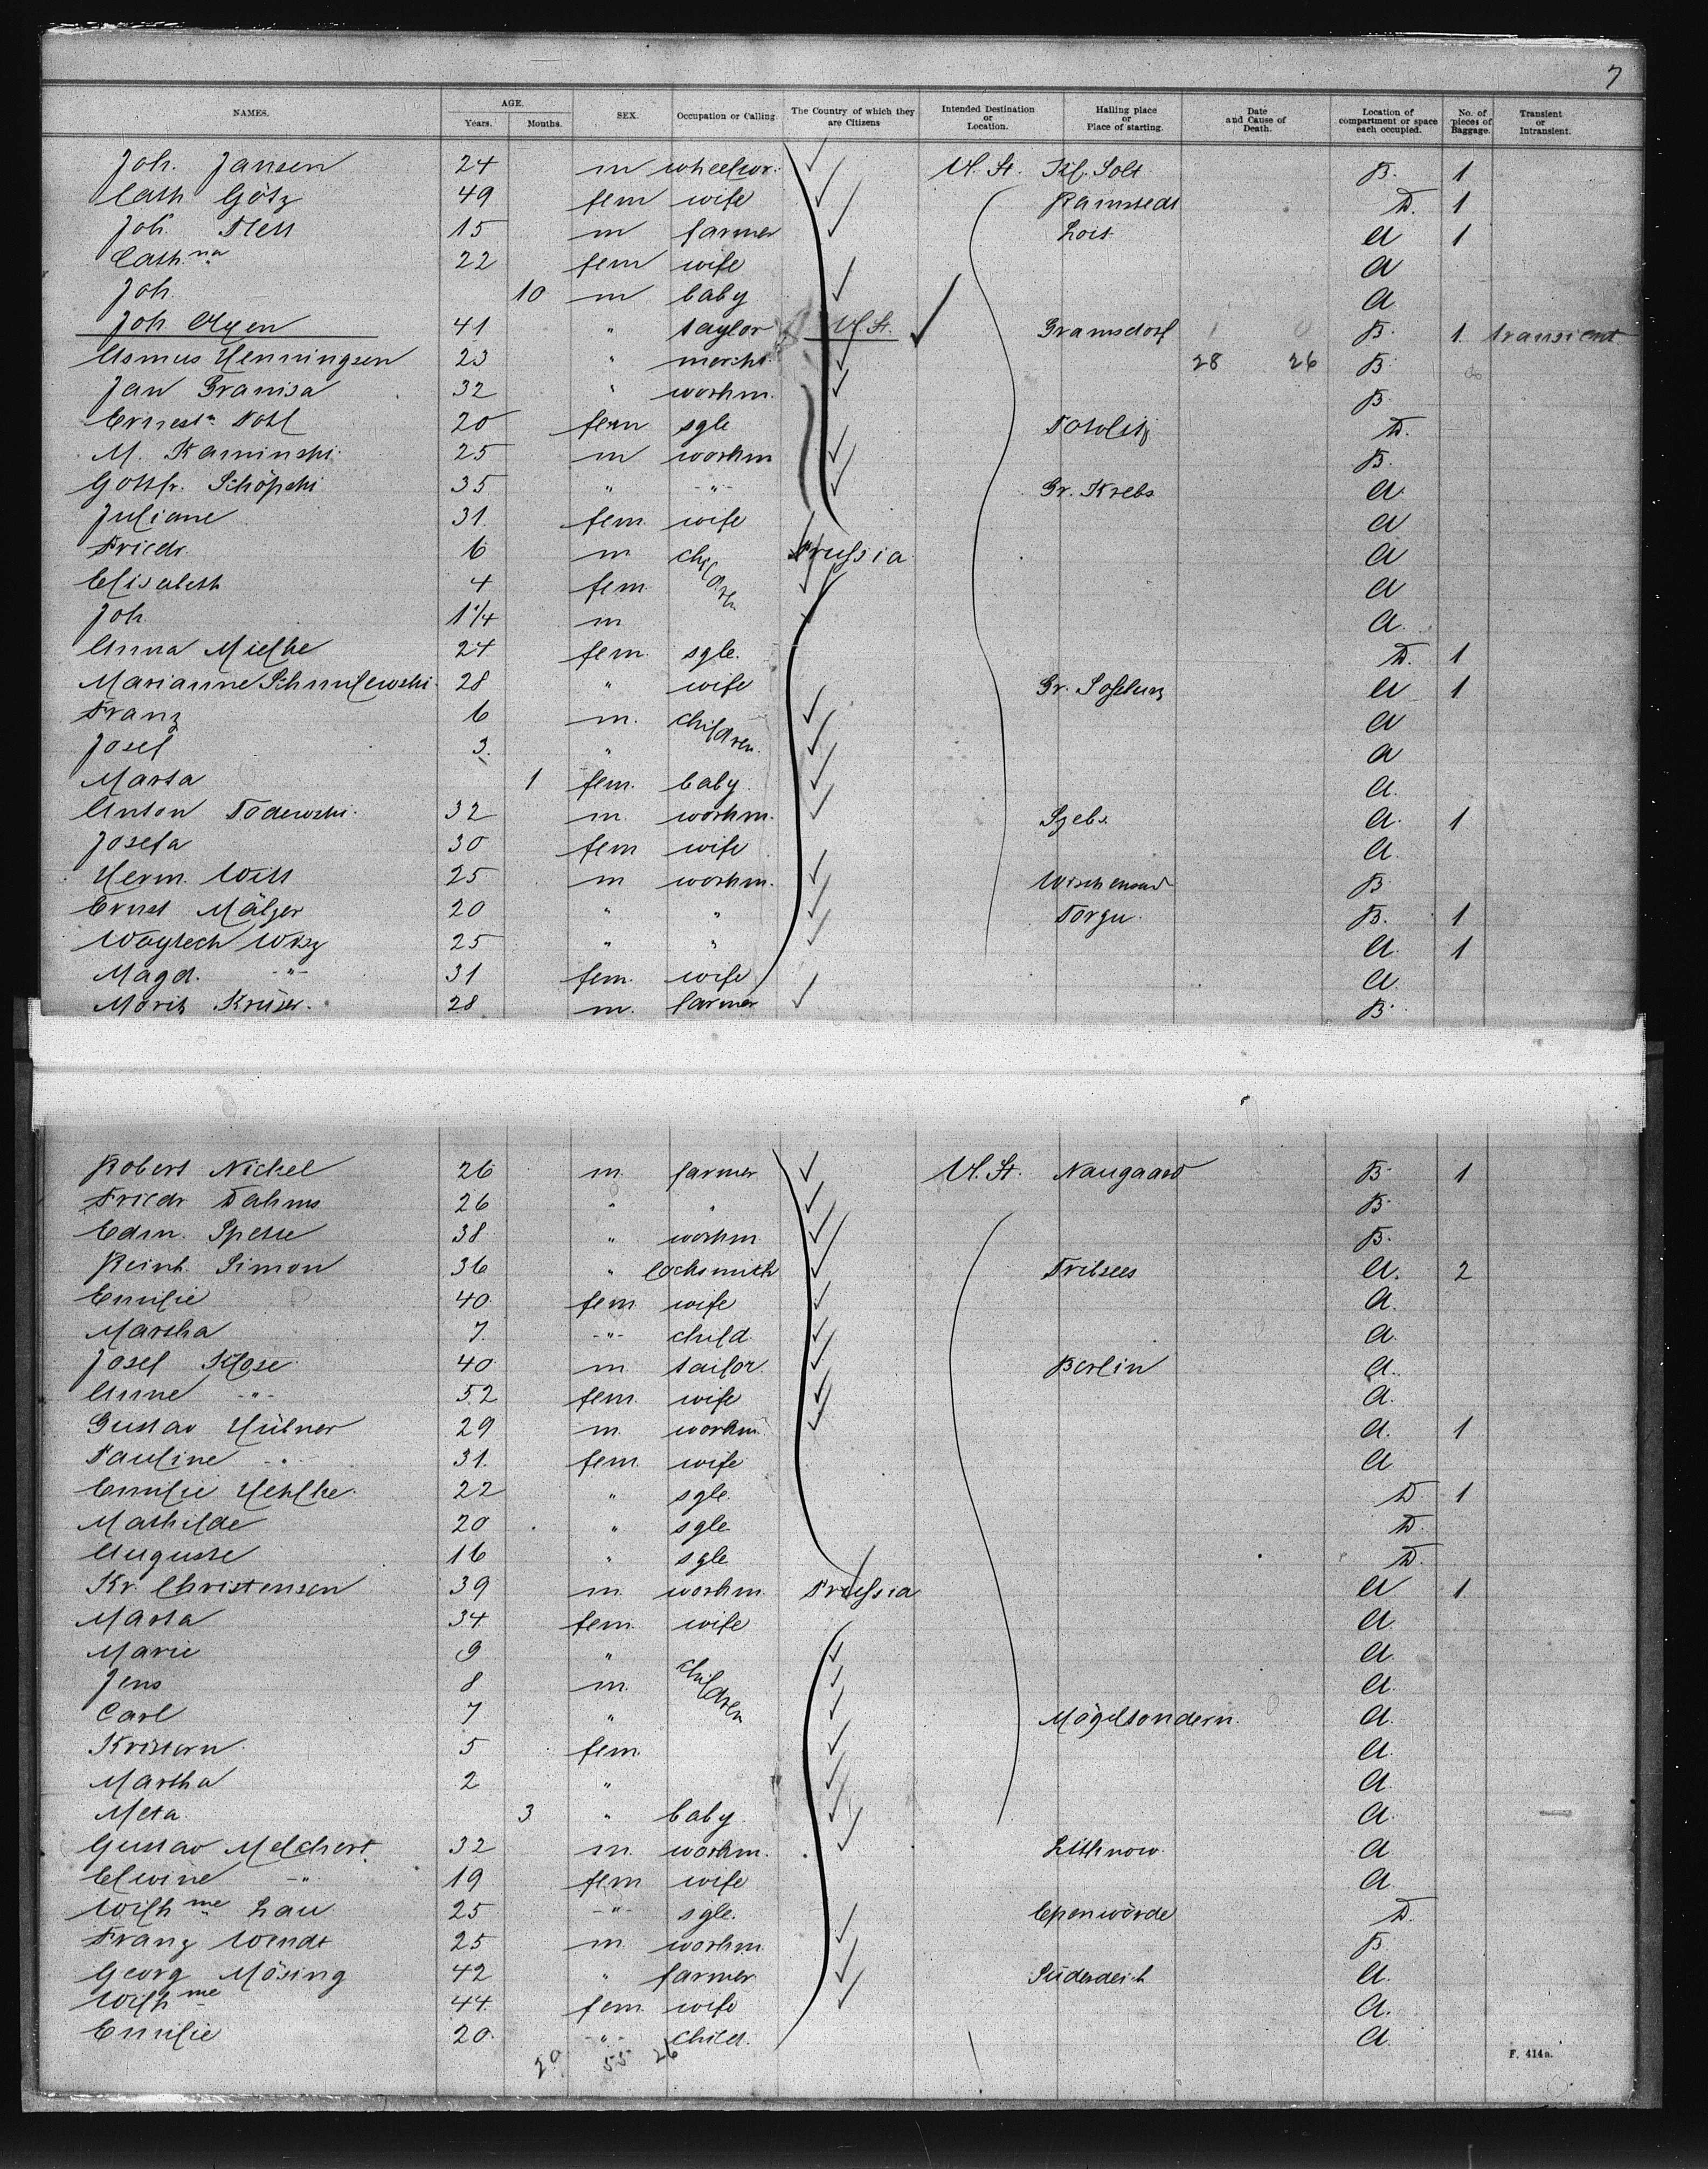 7
NAMES. AGE. Years. Months. SEX. Occupation or Calling The Country of which they are Citizens Intended Destination or Location. Hailing place or Place of starting. Date and Cause of Death. Location of compartment or space each occupied. No. of pieces of Baggage. Transient or Intransient.
Joh. Jansen 24 m wheelwr. U. St. Kl. Solt B. 1
Cath Götz 49 fem wife Ramstedt D. 1
Joh. 15 m farmer Loit a 1
Cath.na 22 fem wife a
Joh 10 m baby a
Joh 41 " taylor U St. Gramsdorf B. 1 transient
Asmus Henningsen 23 " mercht. 28 26 B.
Jan Granisa 32 " workm. B.
Ernest. Pohl 20 fem sgle D.
M. Kaminski 25 m workm B.
Gottfr. Schöpski 35 " -"- Gr. Krebs a
Juliane 31 fem. wife a
Friedr. 6 m children Prussia a
Elisabeth 4 fem. a
Joh 1 1/4 m a.
Anna Mielke 24 fem. sgle. D. 1
Marianne Schmulewski 28 " wife a 1
Franz 6 m. children. a
Josef 3. " a
Marta 1 fem. baby. a.
Anton Todewski. 32 m. workm. a. 1
Josefa 30 fem wife a.
Herm. Witt 25 m workm. B
Ernst Mälzer 20 " " Torgu. B. 1
Woytech 25 " " a. 1
Magd. -"- 31 fem. wife a.
Moritz Krüser. 28 m. farmer B.
Robert Nickel 26 m. farmer U. St. Naugaard B. 1
Friedr Dahms 26 " " B.
Edm. 38 " workm. B.
Reinh. Simon 36 " locksmith Tribsees a. 2
Emilie 40. fem. wife a.
Martha 7. -"- child. a.
Josef Klose 40. m. tailor. Berlin a.
Anne -"- 52 fem. wife a.
Gustav Hübner 29 m. workm. a. 1
Pauline -"- 31. fem. wife a
Emilie 22 " sgle. D. 1
Mathilde 20 " sgle D.
Auguste 16 " sgle D.
Kr. Christensen 39 m. workm. Prussia a 1
Marta 34. fem. wife a.
Marie 9 " children a.
Jens 8 m. a.
Carl 7 " Mögeltondern. a.
Kristern 5 fem. a.
Martha 2 " a.
Meta 3 " baby. a.
Gustav Melchert. 32 m. workm. Lithnow a
Elwine -"- 19 fem wife a.
Wilhme Lau 25 -"- sgle. Epenwörde D.
Franz Wendt 25 m. workm. B
Georg Mösing 42 " farmer Süderdeich a.
Wilhme 44. fem. wife a.
Emilie 20. -"- child. a.
29 55 26
F. 414a.